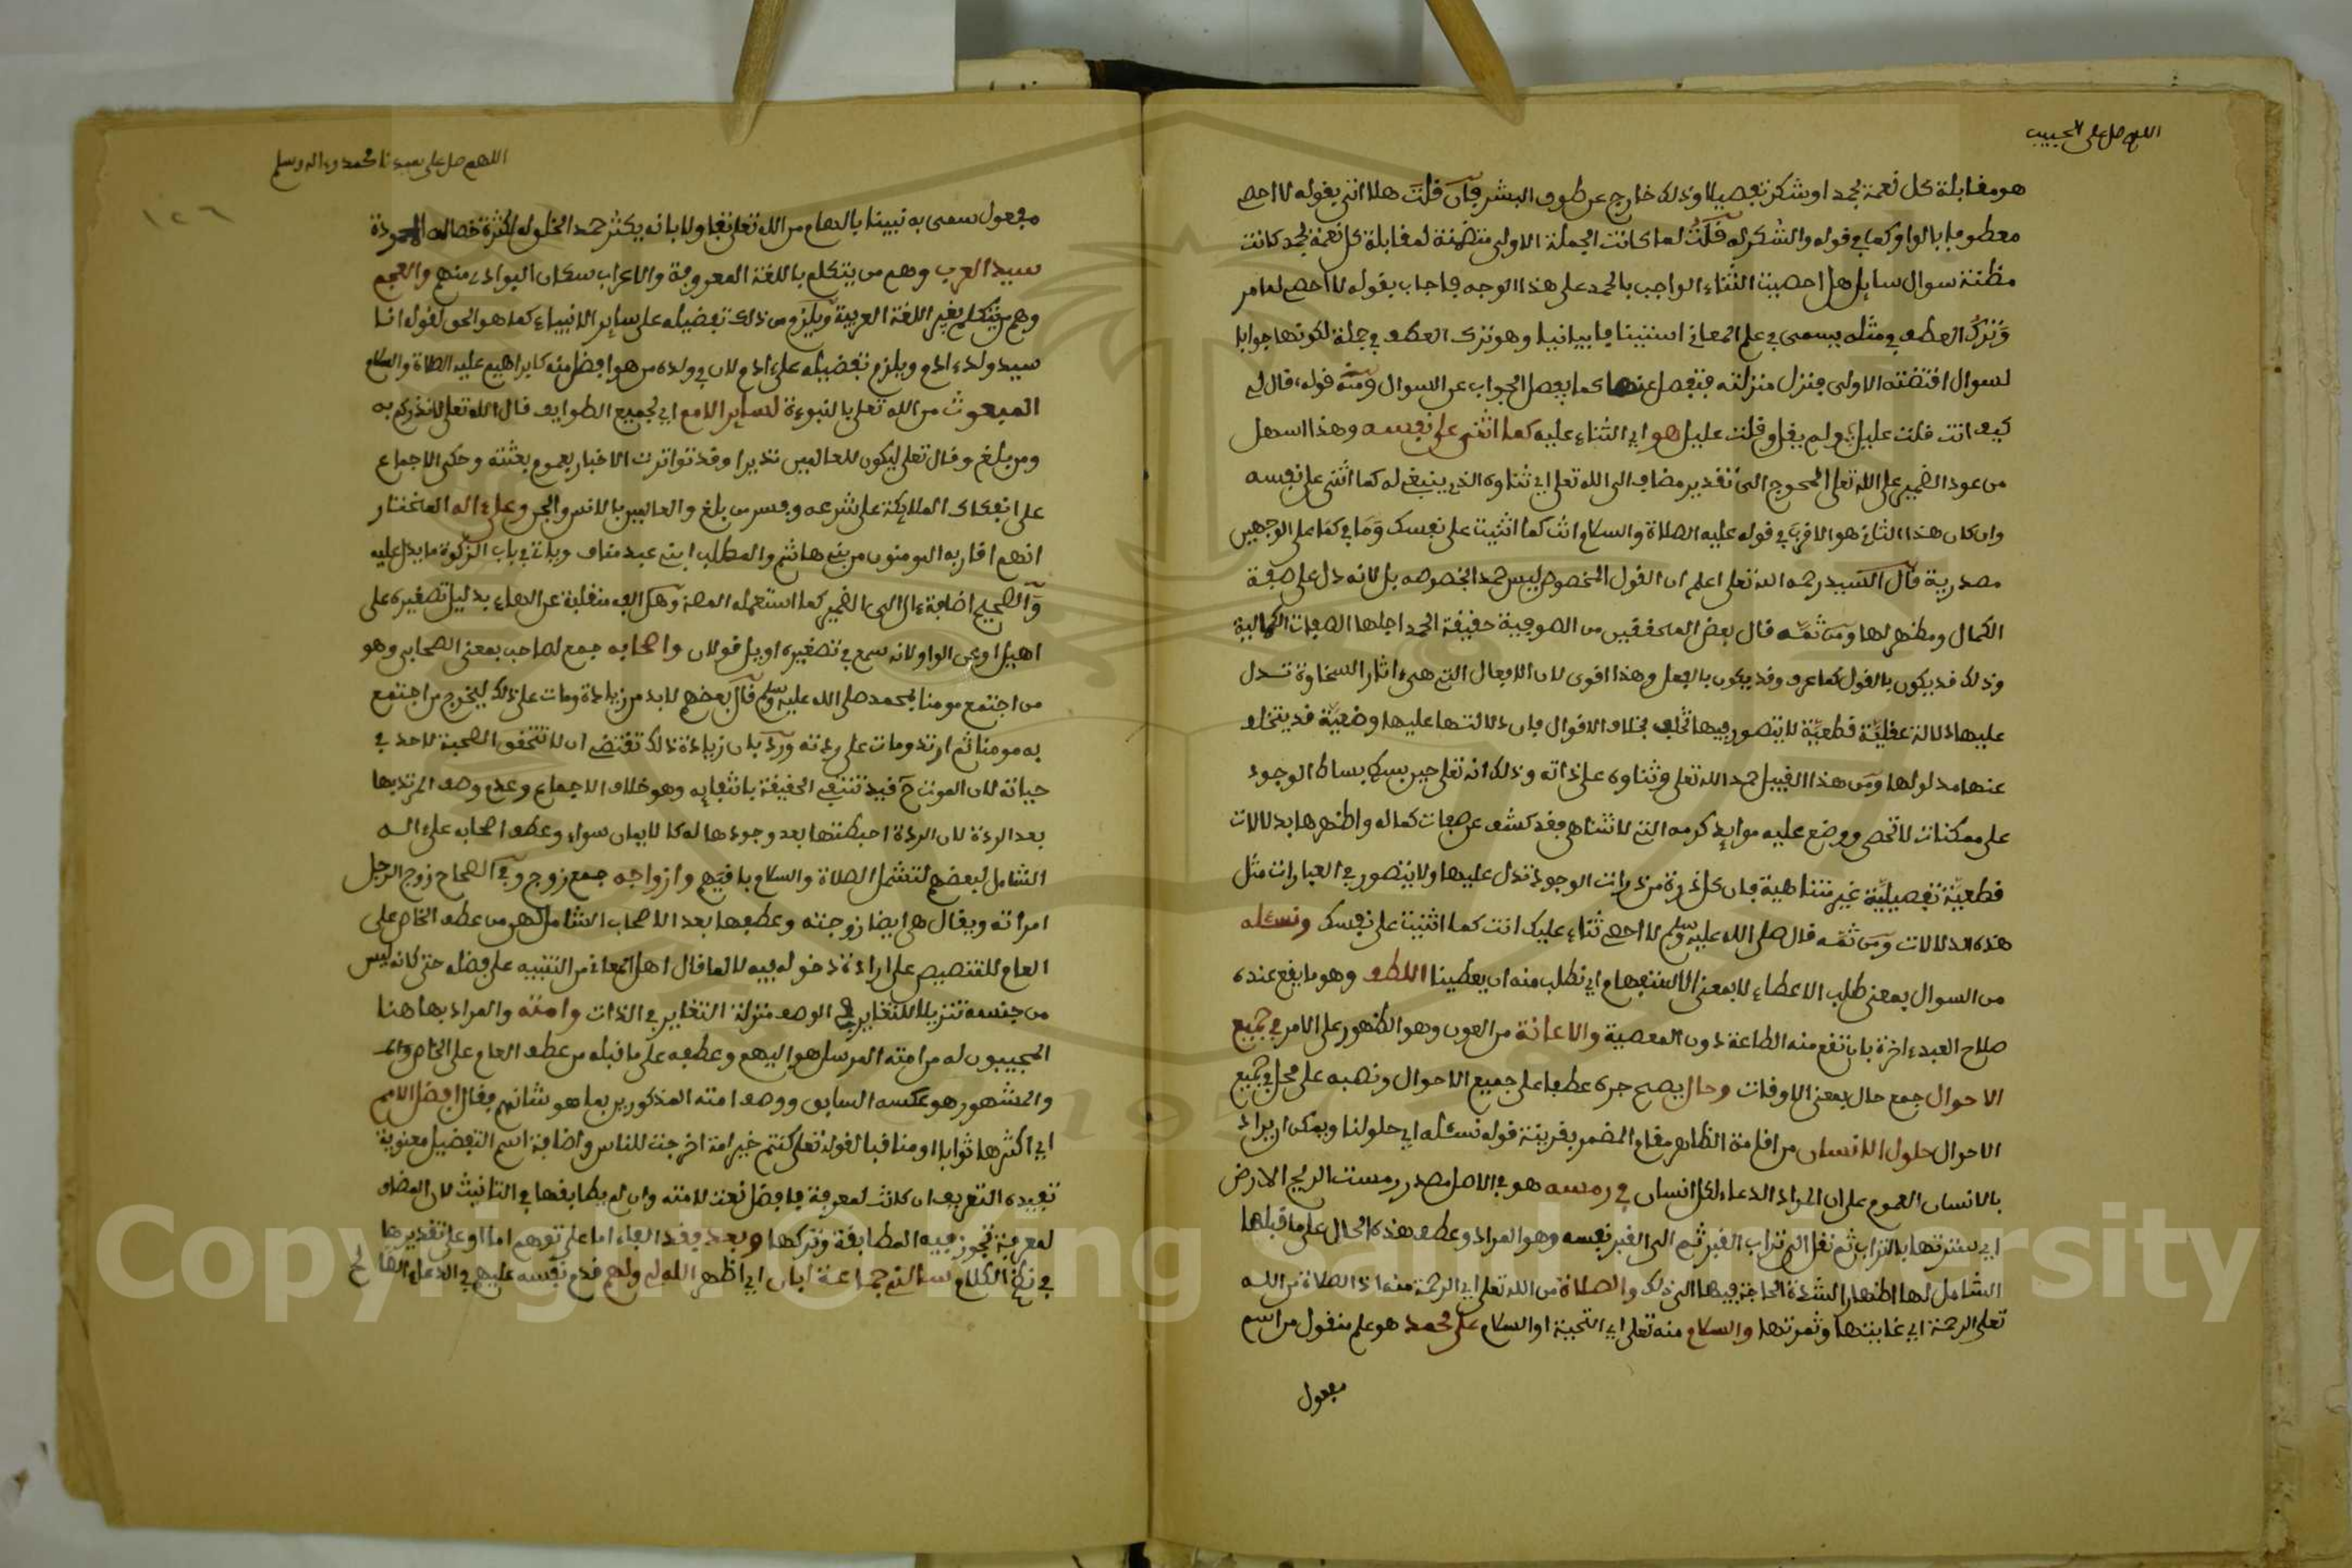 اللهم صل على الحبيب
هو مقابلة كل نعمة بحمد او شكر تفصيلا وذلك خارج عن طوق البشر فان قلت هلا اتى بقوله لا احصي
معطوفا بالواو كما في قوله والشكر له قلت لما كانت الجملة الاولى متضمنة لمقابلة كل نعمة بحمد كانت
مظنة سوال سايل هل احصيت الثناء الواجب بالحمد على هذا الوجه فاجاب بقوله لا احصي لما مر
وترك العطف في مثله يسمى في علم المعاني استينافا بيانيا وهو ترك العطف في جملة لكونها جوابا
لسوال اقتضته الاولى فتنزل منزلته فتفصل عنها كما يفصل الجواب عن السوال ومنه قوله قال لي
كيف انت قلت عليل ولم يقل وقلت عليل هو اي الثناء عليه كما اثنى على نفسه وهذا اسهل
من عود الضمير على الله تعلى المحوج الى تقدير مضاف الى الله تعلى اي ثناوه الذي ينبغي له كما اثنى على نفسه
وان كان هذا الثاني هو الاقرب في قوله عليه الصلاة والسلام انت كما اثنيت على نفسك وما في كما على الوجهين
مصدرية قال السيد رحمه الله تعلى اعلم ان القول المخصوص ليس حمدا بخصوصه بل لانه دل على صفة
الكمال ومظهر لها ومن ثمه قال بعض المحققين من الصوفية حقيقة الحمد اجلها الصفات الكمالية
وذلك قد يكون بالقول كما عرف وقد يكون بالفعل وهذا اقوى لان الافعال التي هي اثار السخاوة تدل
عليها دلالة عقلية قطعية لا يتصور فيها تخلف بخلاف الاقوال فان دلالتها عليها وضعية قد يتخلف
عنها مدلولها ومن هذا القبيل حمد الله تعلى وثناوه على ذاته وذلك انه تعلى حين بسط بساط الوجود
على ممكنات لا تحصى ووضع عليه موايد كرمه التي لا تتناهى فقد كشف عن صفات كماله واظهرها بدلالات
قطعية تفصيلية غير متناهية فان كل ذرة من ذرات الوجود تدل عليها ولا يتصور في العبارات مثل
هذه الدلالات ومن ثمه قال صلى الله عليه وسلم لا احصي ثناء عليك انت كما اثنيت على نفسك ونسئله
من السوال بمعنى طلب الاعطاء لا بمعنى الاستفهام اي نطلب منه ان يعطينا اللطف وهو ما يقع عنده
صلاح العبد ءاخرة بان تقع منه الطاعة دون المعصية والاعانة من العون وهو الظهور على الامر في جميع
الاحوال جمع حال بمعنى الاوقات وحال يصح جره عطفا على جميع الاحوال ونصبه على محل في جميع
الاحوال حلول الانسان من اقامة الظاهر مقام المضمر بقرينة قوله نسئله اي حلولنا ويمكن ان يراد
بالانسان العموم على ان المراد الدعاء لكل انسان في رمسه هو في الاصل مصدر رمست الريح الارض
اي سترتها بالتراب ثم نقل الى تراب القبر ثم الى القبر نفسه وهو المراد وعطف هذه الحال على ما قبلها
الشامل لها اظهار الشدة الحاجة فيها الى ذلك والصلاة من الله تعلى اي الرحمة منه اذ الصلاة من الله
تعلى الرحمة اي غايتها وثمرتها والسلام منه تعلى اي التحية او السلام على محمد هو علم منقول من اسم
مفعول
اللهم صل على سيدنا محمد وءاله وسلم
١٢٦
مفعول سمى به نبينا بالهام من الله تعلى تفاولا بانه يكثر حمد الخلق له لكثرة خصاله المحمودة
سيد العرب وهم من يتكلم باللغة المعروفة والاعراب سكان البوادي منهم والعجم
وهم من يتكلم بغير اللغة العربية ويلزم من ذلك تفضيله على ساير الانبياء كما هو الحق لقوله انا
سيد ولد ءادم ويلزم تفضيله على ءادم لان في ولده من هو افضل منه كابراهيم عليه الصلاة والسلام
المبعوث من الله تعلى بالنبوءة لساير الامم اي لجميع الطوايف قال الله تعلى لانذركم به
ومن بلغ وقال تعلى ليكون للعالمين نذيرا وقد تواترت الاخبار بعموم بعثته وحكى الاجماع
على انفكاك الملايكة على شرعه وفسر من بلغ والعالمين بالانس والجن وعلى ءاله المختار
انهم اقاربه المومنون من بني هاشم والمطلب ابني عبد مناف وياتي في باب الزكوة ما يدل عليه
والصحيح اضافة ءال الى الضمير كما استعمله المص وهل الفه منقلبة عن الهاء بدليل تصغيره على
اهيل او عن الواو لانه سمع في تصغيره اويل قولان واصحابه جمع لصاحب بمعنى الصحابي وهو
من اجتمع مومنا بمحمد صلى الله عليه وسلم قال بعضهم لا بد من زيادة ومات على ذلك ليخرج من اجتمع
به مومنا ثم ارتد ومات على ردته ورد بان زيادة ذلك تقتضي ان لا تتحقق الصحبة لاحد في
حياته لان الموت ح قيد تنتفي الحقيقة بانتفايه وهو خلاف الاجماع وعدم وصف المرتد بها
بعد الردة لان الردة احبطتها بعد وجودها له كالايمان سواء وعطف اصحابه على ءاله
الشامل لبعضهم لتشمل الصلاة والسلام باقيهم وازواجه جمع زوج وفي الصحاح زوج الرجل
امراته ويقال هي ايضا زوجته وعطفها بعد الاصحاب الشامل لهن من عطف الخاص على
العام للتنصيص على ارادة دخوله فيه لا لما قال اهل المعاني من التنبيه على فضله حتى كانه ليس
من جنسه تنزيلا للتغاير في الوصف منزلة التغاير في الذات وامته والمراد بها هنا
المجيبون له من امته المرسل هو اليهم وعطفه على ما قبله من عطف العام على الخاص
والمشهور هو عكسه السابق ووصف امته المذكورين بما هو شانهم فقال افضل الامم
اي اكثرها ثوابا او مناقبا لقوله تعلى كنتم خير امة اخرجت للناس واضافة اسم التفضيل معنوية
تفيده التعريف ان كانت لمعرفة فافضل نعت لامته وان لم يطابقها في التانيث لان المضاف
لمعرفة تجوز فيه المطابقة وتركها وبعد فقد الفاء اما على توهم اما او على تقديرها
في نظم الكلام سالني جماعة ابان اي اظهر الله لي ولهم قدم نفسه عليهم في الدعاء